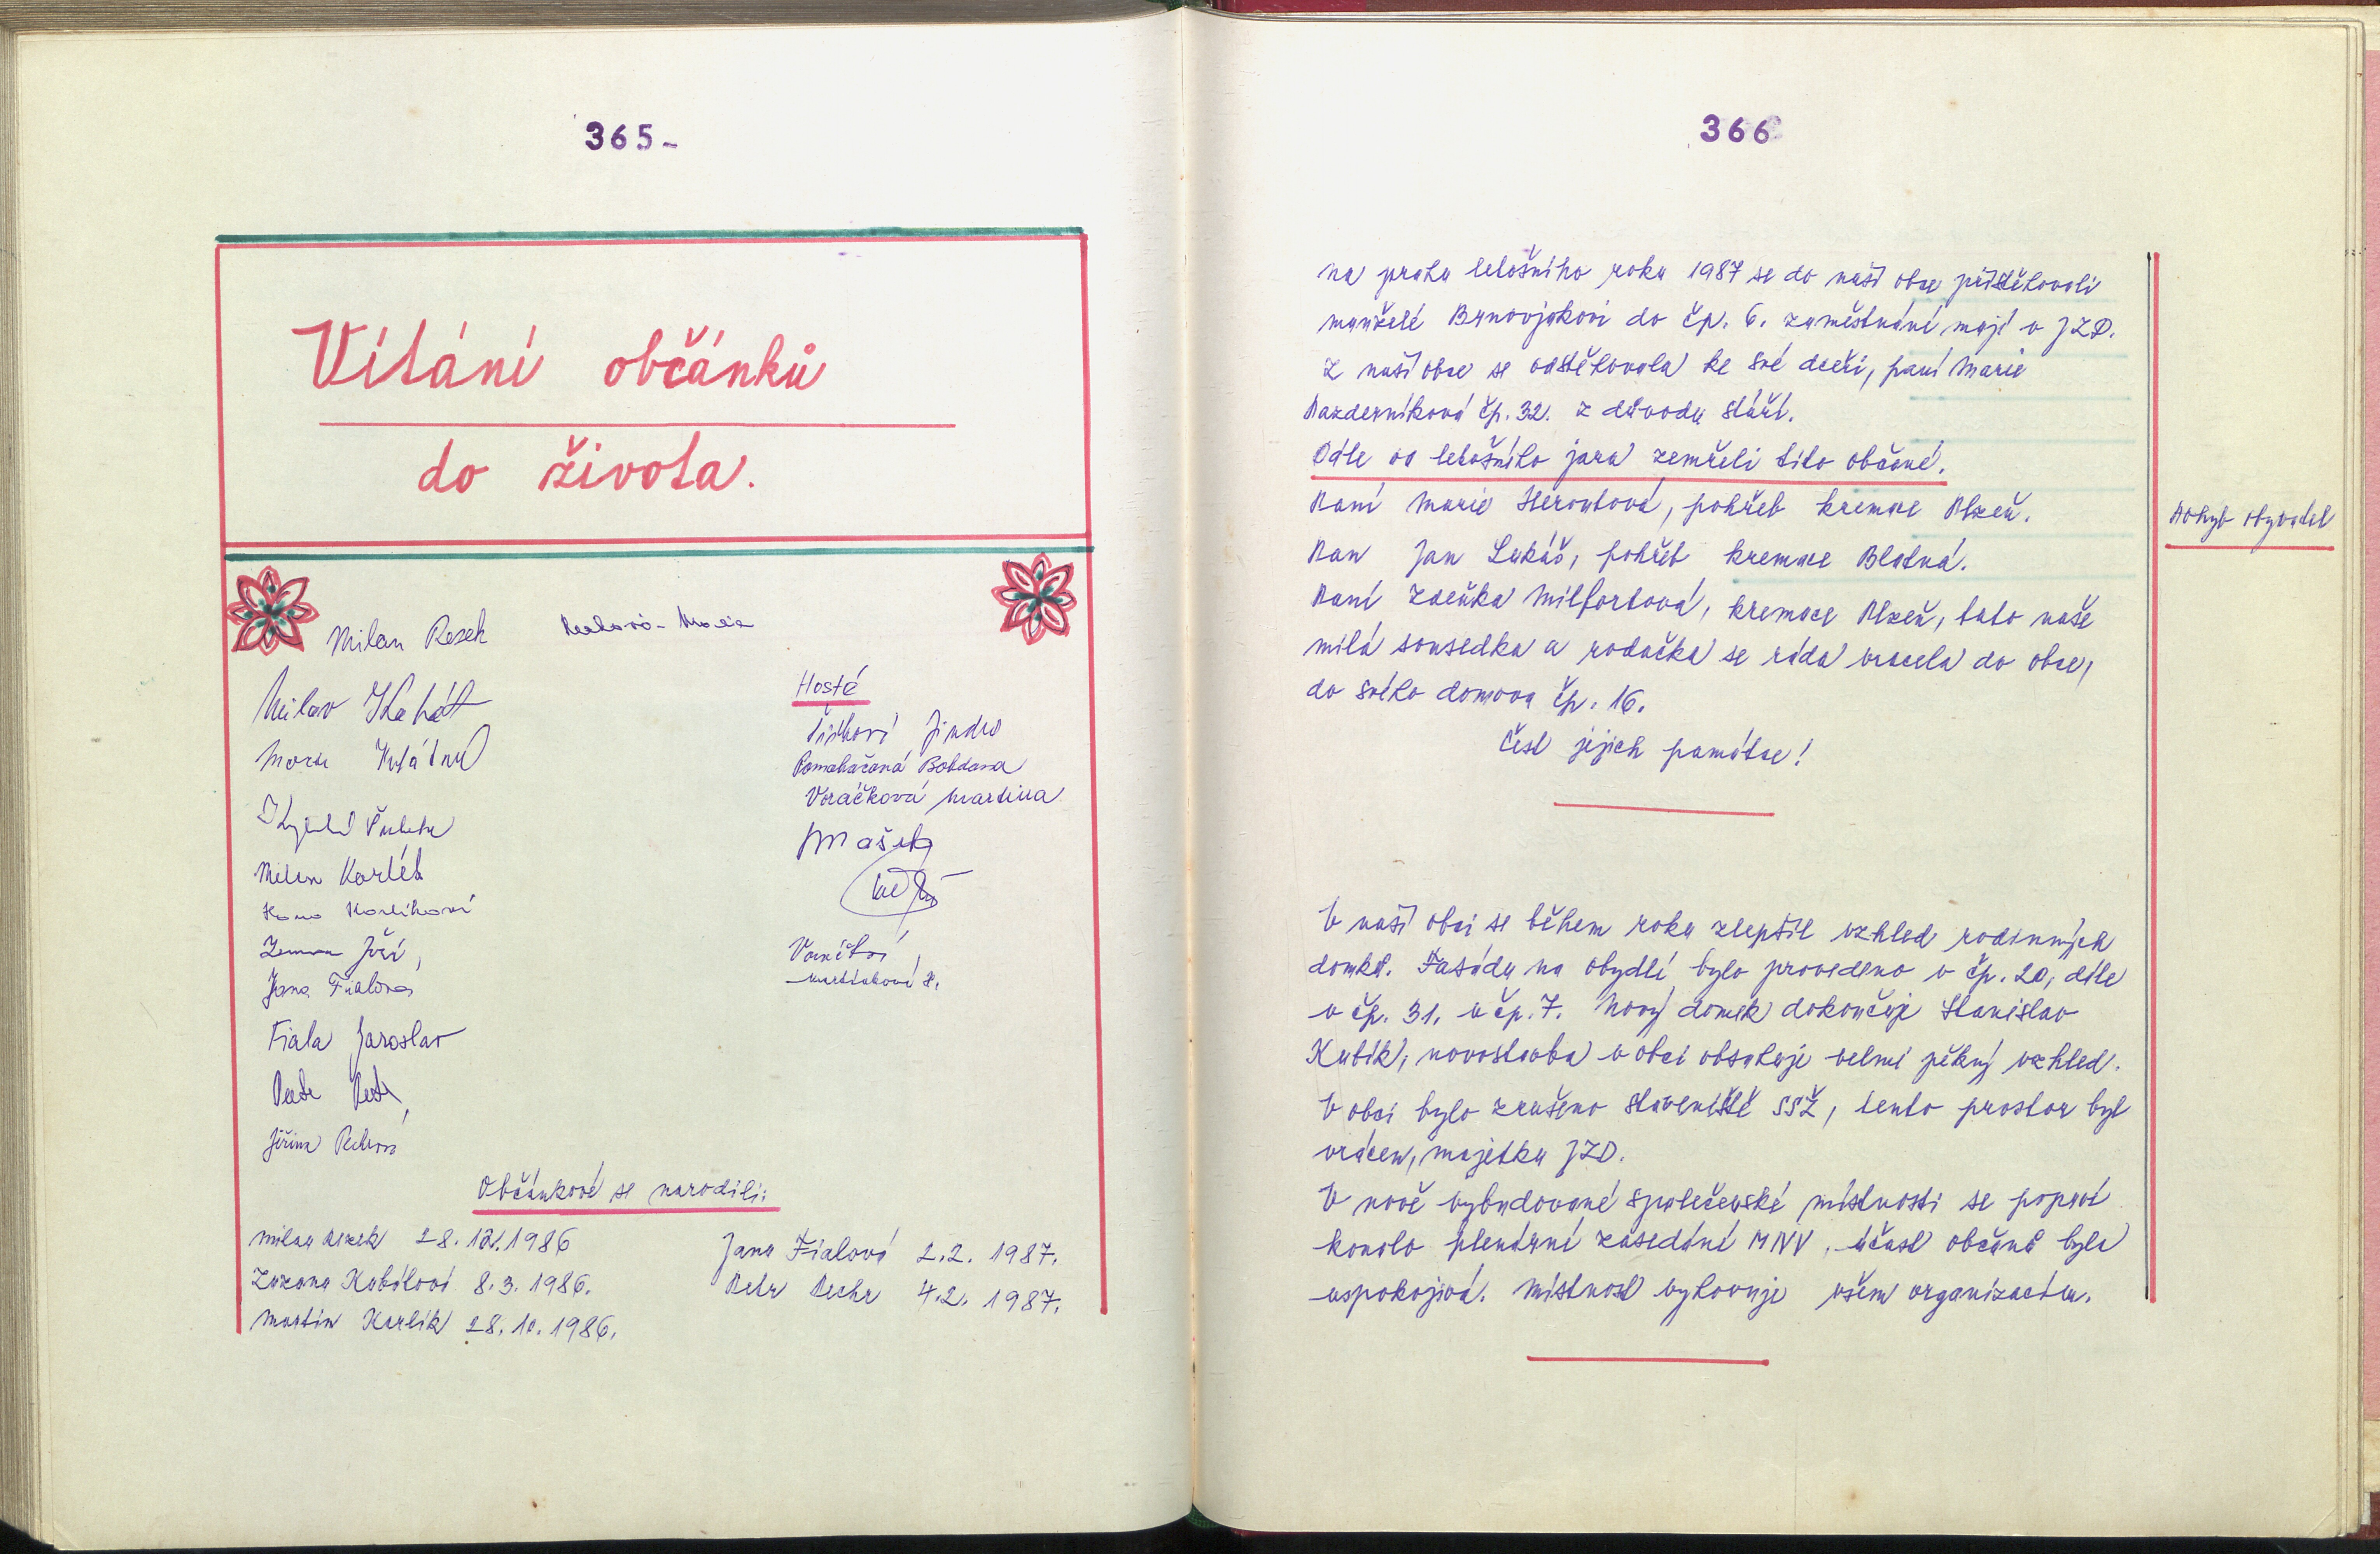 365-
Vítání občánků
do života.
Milan Rezek
Milan
Marie
Milan Karlík
Hana Karlíková
Zeman Jiří,
Jana Fialová
Fiala Jaroslav
Pechr Petr,
Jiřina Pechrová
Hosté
Jindra
Pomahačová Bohdana
Voráčková Martina
JMašek
Občánkové se narodili:
Milan Rezek 28. 12. 1986
Zuzana 8. 3. 1986.
Martin Karlík 28. 10. 1986.
Jana Fialová 2.2. 1987.
Petr Pechr 4.2. 1987.
366
na prahu letošního roku 1987 se do naší obce přistěhovali
manželé do čp. 6. zaměstnání mají v JZD.
Z naší obce se odstěhovala ke své dceři, paní Marie
Pazderníková čp. 32. z důvodu stáří.
Dále od letošního jara zemřeli tito občané.
Paní Marie Heroutová, pohřeb kremace Plzeň.
Pan Jan Lukáš, pohřeb kremace Blatná.
Paní Zdeňka Milfortová, kremace Plzeň, tato naše
milá sousedka a rodačka se ráda vracela do obce,
do svého domova čp. 16.
Čest jejich památce!
Pohyb obyvatel
V naší obci se během roku zlepšil vzhled rodinných
domků. Fasády na obydlí bylo provedeno v čp. 20, dále
v čp. 31. v čp. 7. Nový domek dokončuje Stanislav
Kubík, novostavba v obci obsahuje velmi pěkný vzhled.
V obci bylo zrušeno staveniště SSŽ, tento prostor byl
vrácen, majetku JZD.
V nově vybudované společenské místnosti se poprvé
konalo plenární zasedání MNV, účast občanů byla
uspokojivá. Místnost vyhovuje všem organizacím.